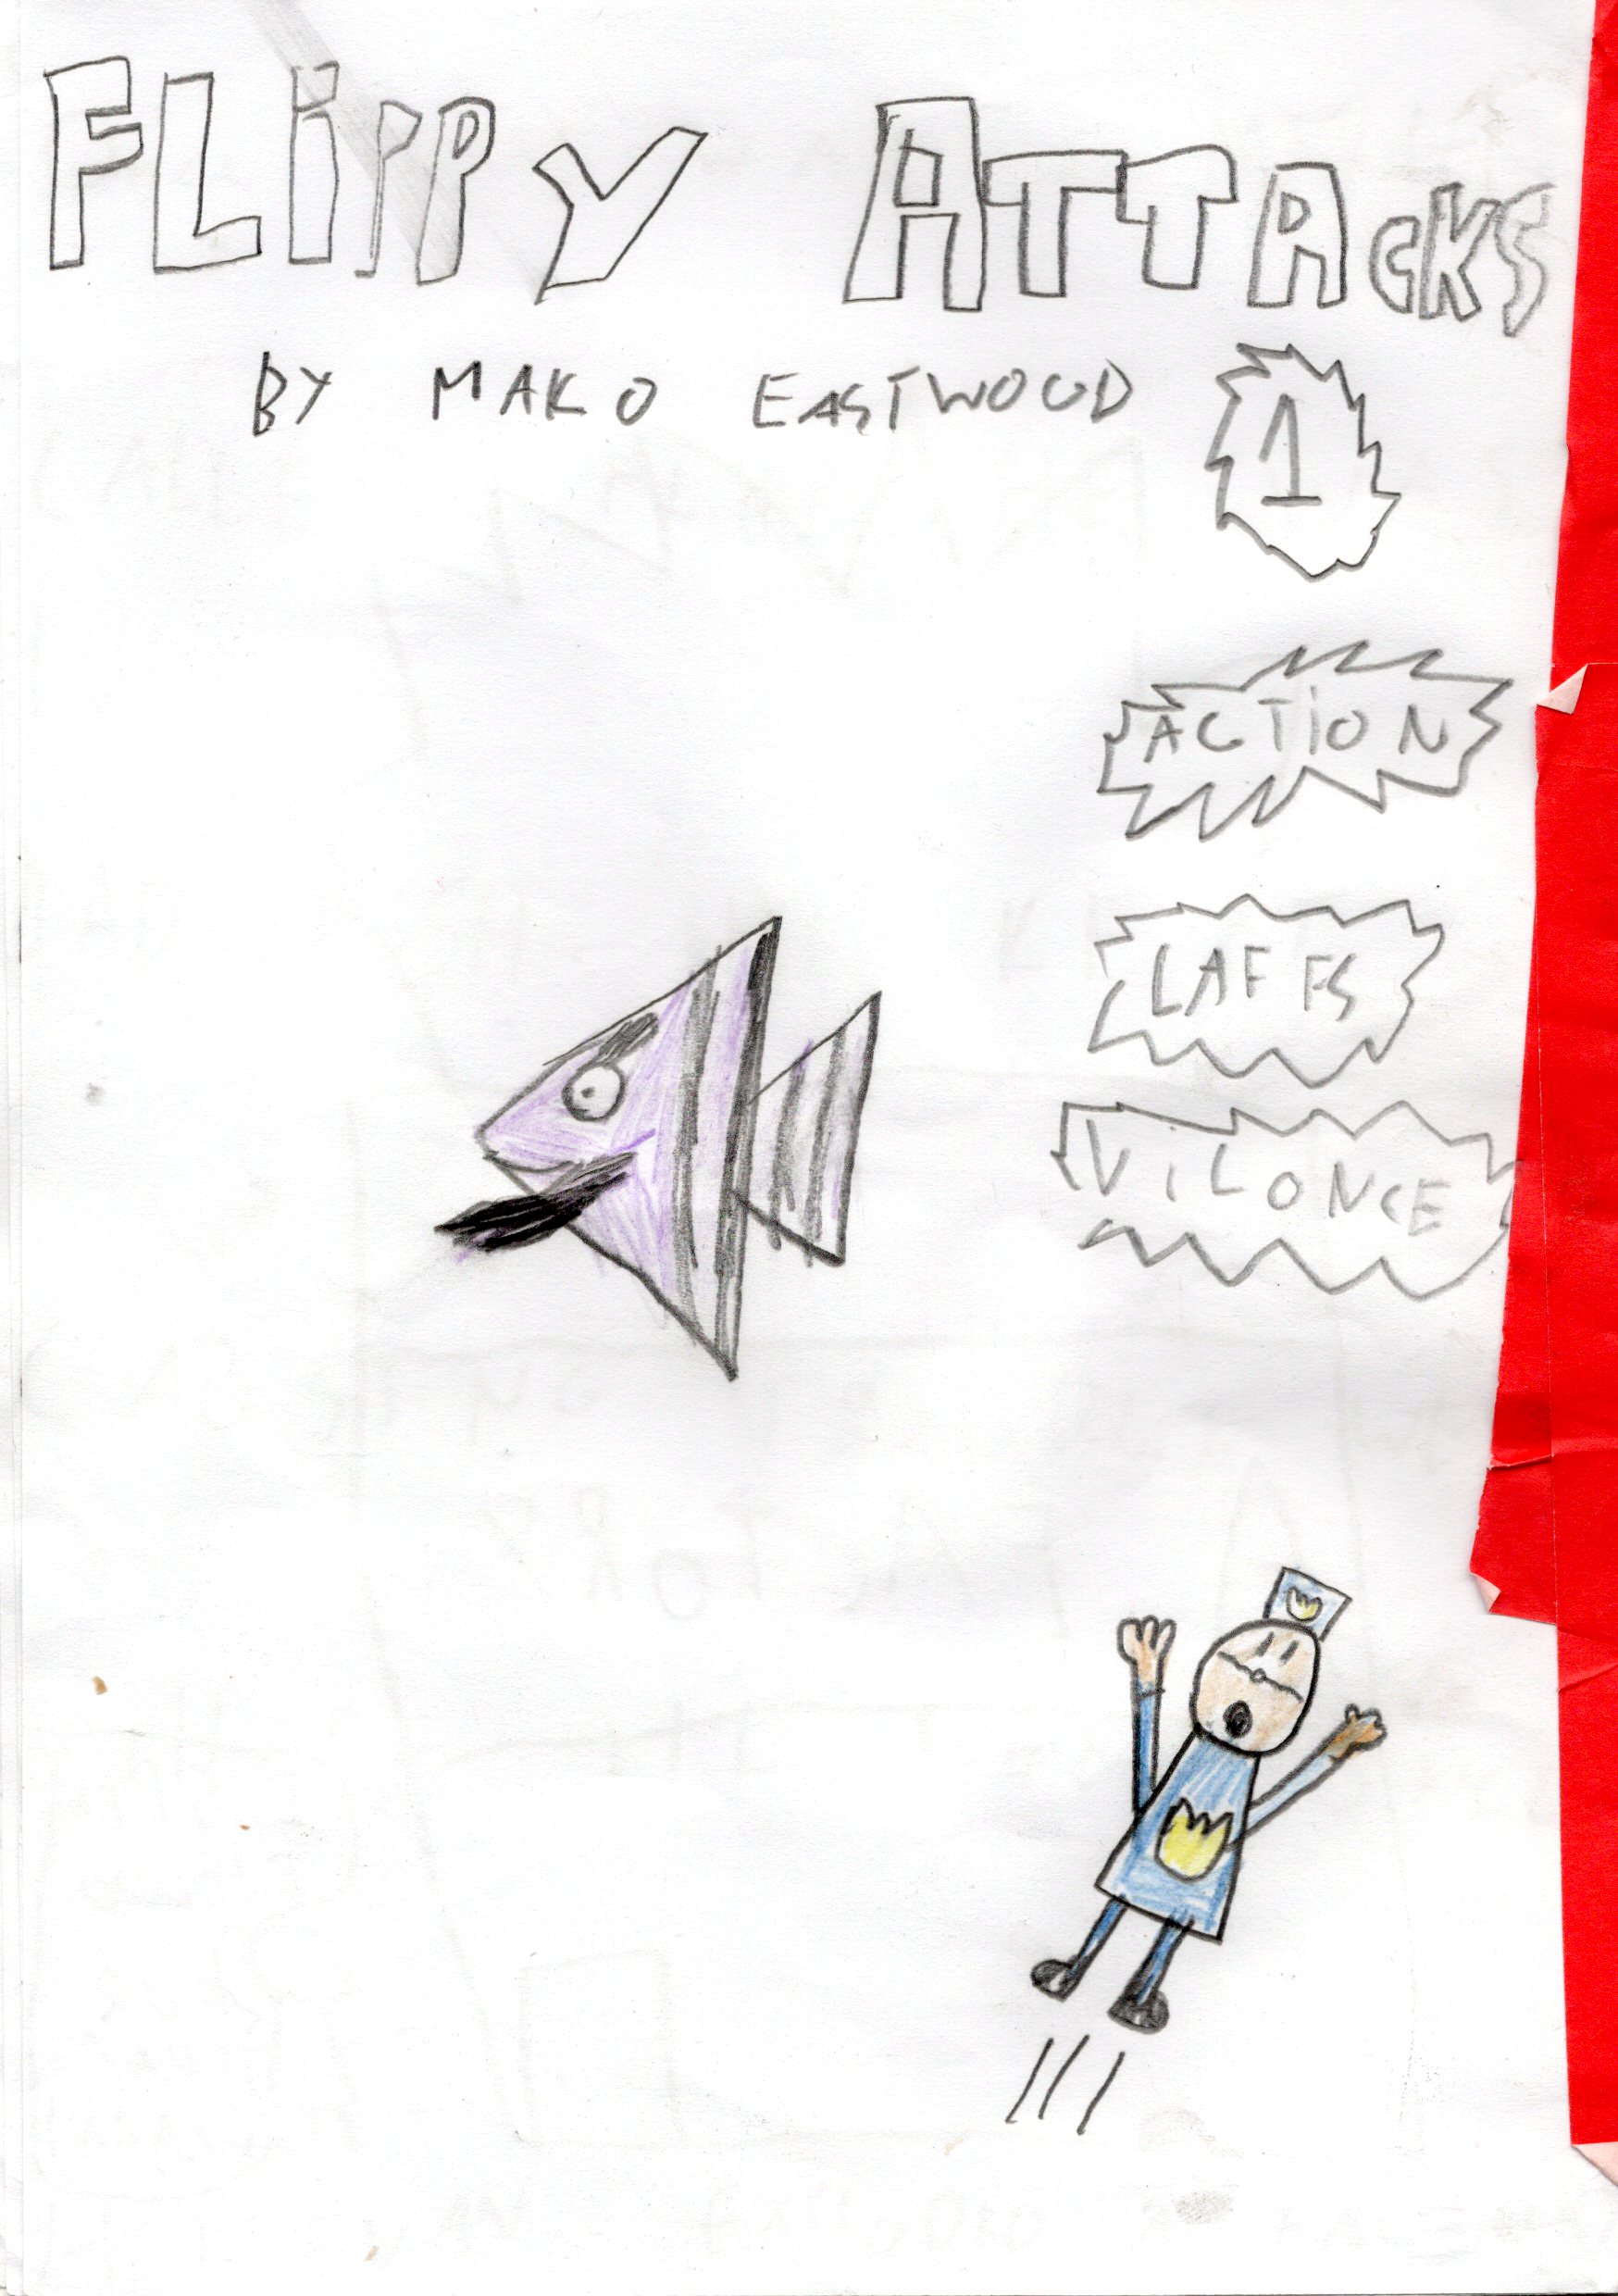 FLiPPY ATTACKS
BY MAKO EASTWOOD
1
ACTION
LAFFS
ViLONCE